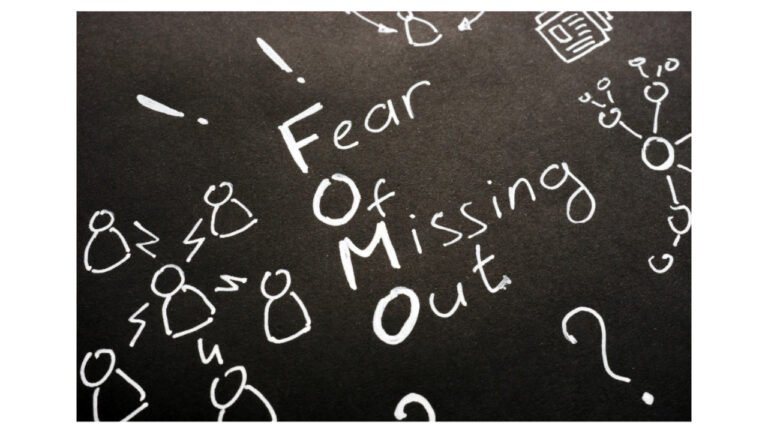 Fear
Of
Missing
Out
?
?